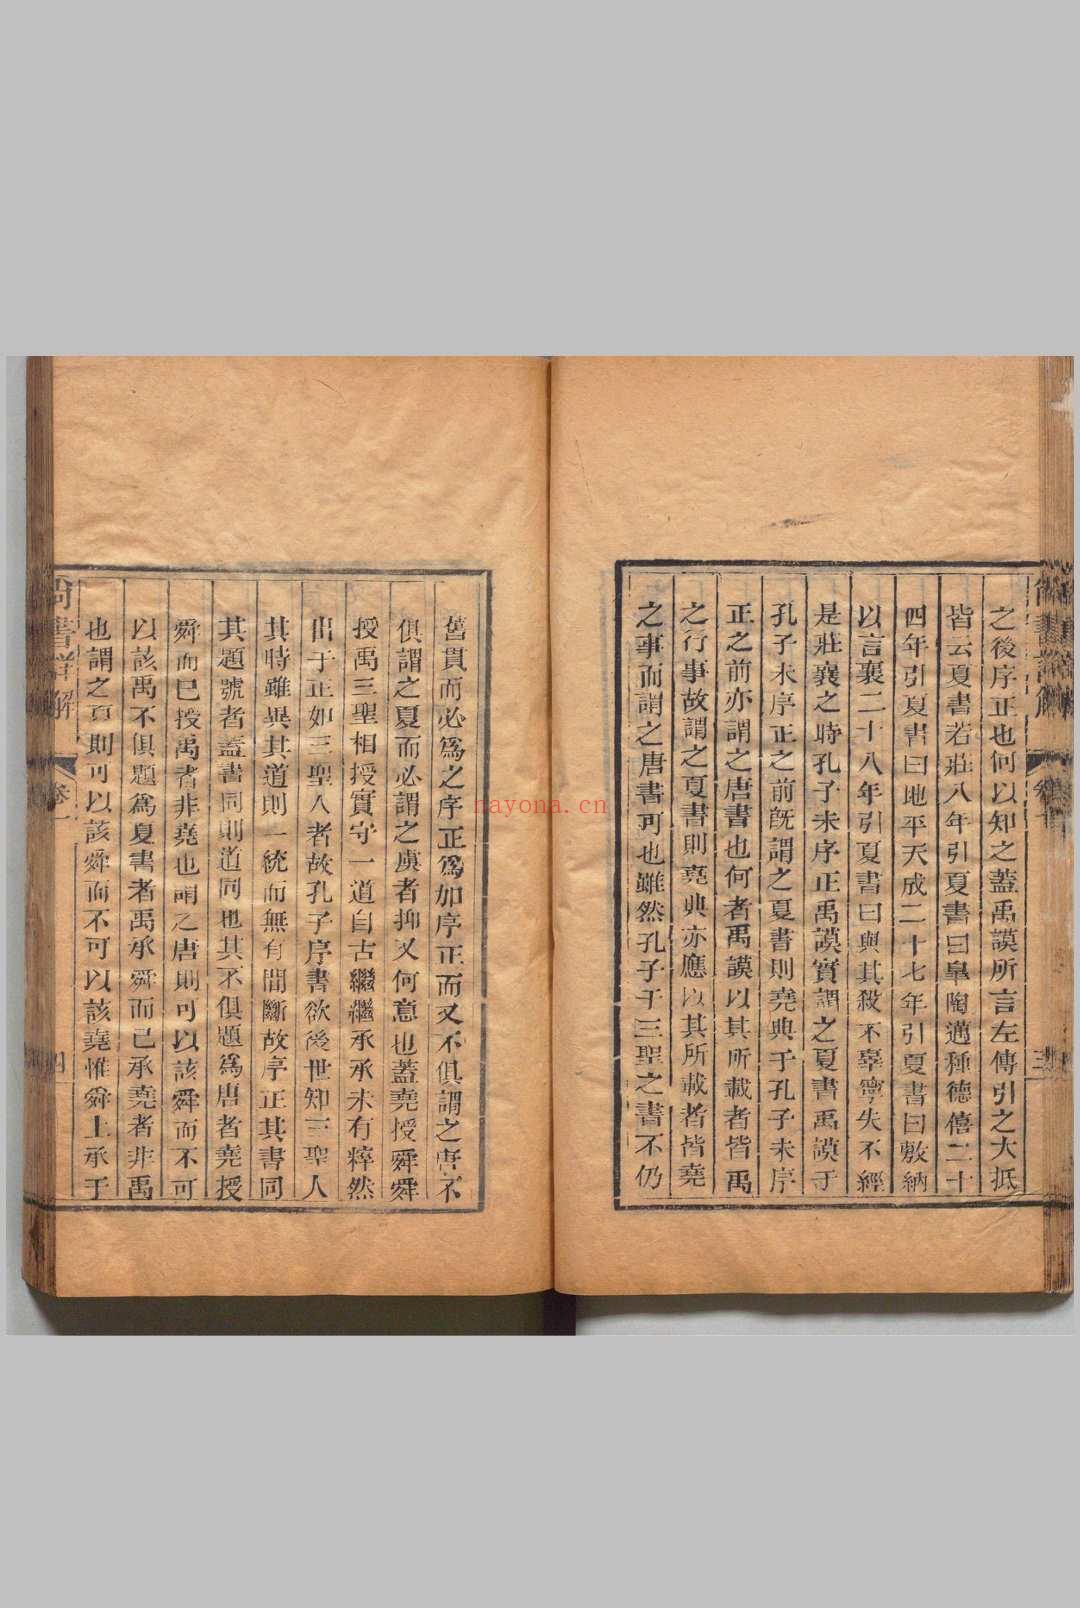 之後序正也何以知之蓋禹謨所言左傳引之大抵
皆云夏書若莊八年引夏書曰皐陶邁種德僖二十
四年引夏書曰地平天成二十七年引夏書曰敷納
以言襄二十八年引夏書曰與其殺不辜寧失不經
是莊襄之時孔子未序正禹謨實謂之夏書禹謨于
孔子未序正之前旣謂之夏書則堯典于孔子未序
正之前亦謂之唐書也何者禹謨以其所載者皆禹
之行事故謂之夏書則堯典亦應以其所載者皆堯
之事而謂之唐書可也雖然孔子于三聖之書不仍
舊貫而必爲之序正爲如序正而又不俱謂之唐不
俱謂之夏而必謂之虞者抑又何意也蓋堯授舜舜
授禹三聖相授實守一道自古繼繼承承未有粹然
出于正如三聖人者故孔子序書欲後世知三聖人
其時雖異其道則一統而無有間斷故序正其書同
其題號者蓋書同則道同也其不俱題爲唐者堯授
舜而已授禹者非堯也謂之唐則可以該舜而不可
以該禹不俱題爲夏書者禹承舜而已承堯者非禹
也謂之夏則可以該舜而不可以該堯惟舜上承于
尚書詳解
卷一
四
尚書詳解
卷一
三
nayona.cn